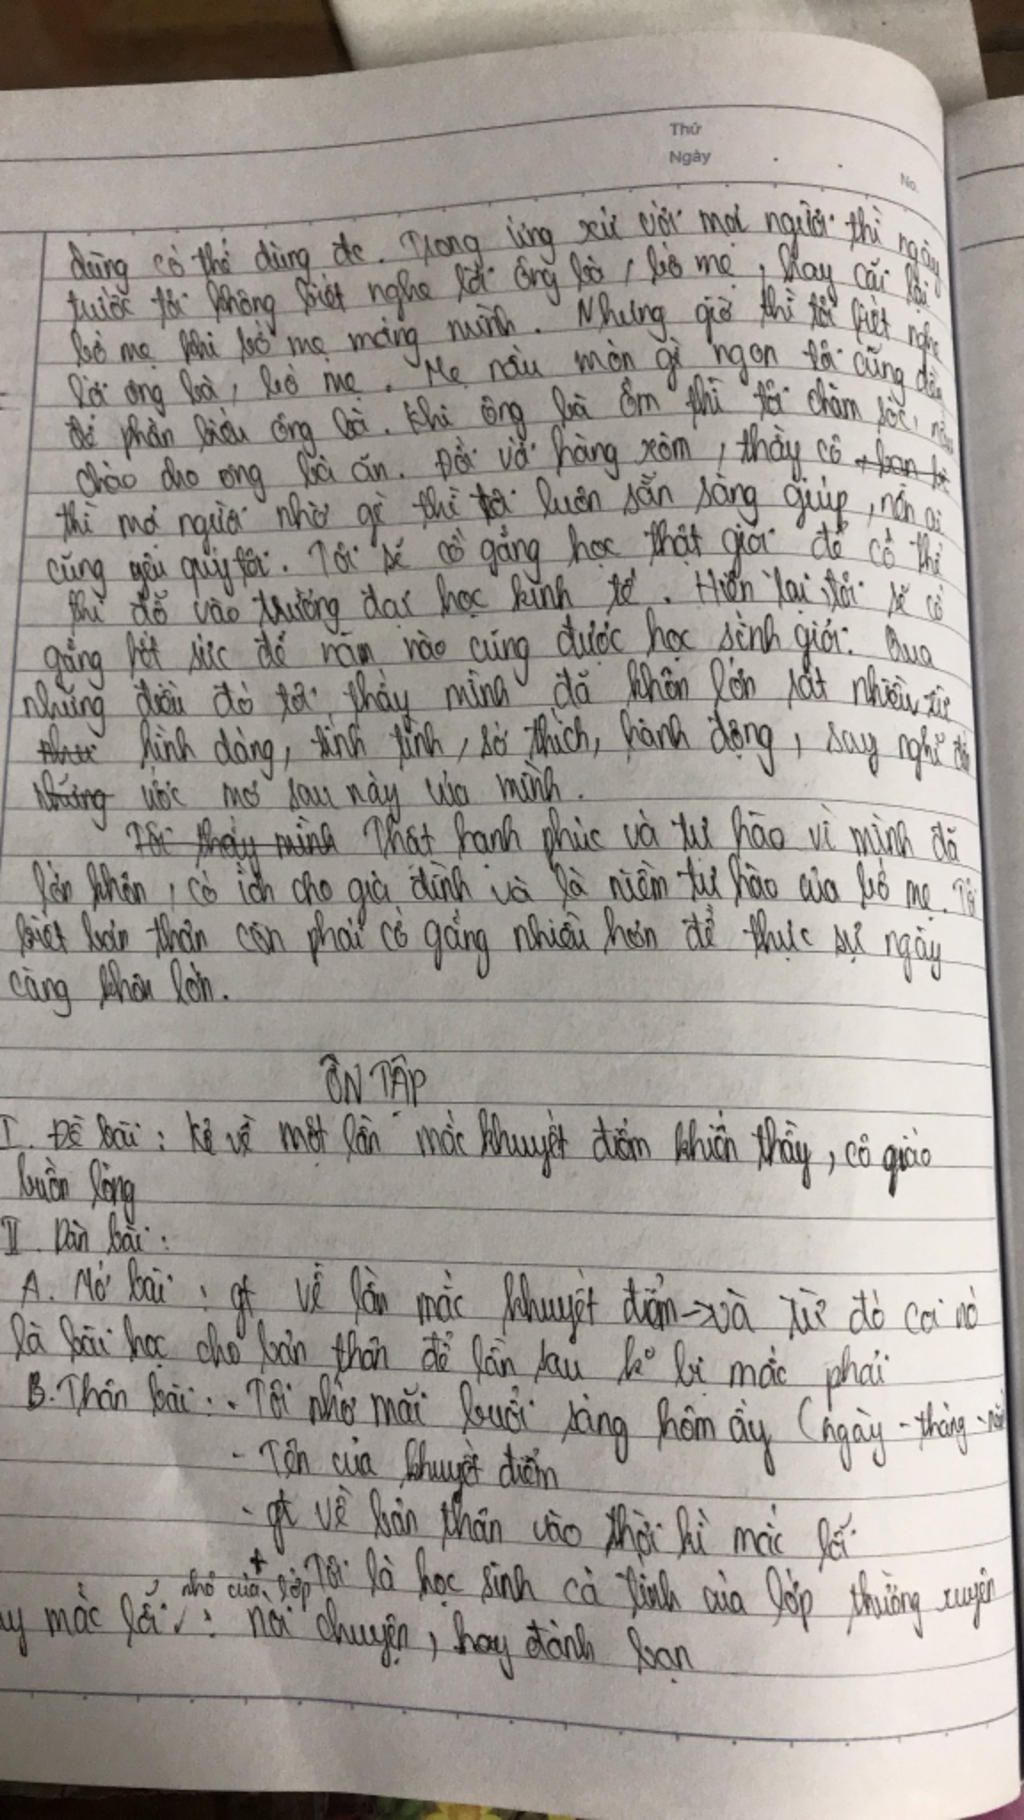 Thứ
Ngày
No.
dùng có thể dùng đc. Trong ứng xử với mọi người thì ngày
trước tôi không biết nghe lời ông bà, bố mẹ, hay cãi lại
bố mẹ khi bố mẹ mắng mình. Nhưng giờ thì tôi biết nghe
lời ông bà, bố mẹ. Mẹ nấu món gì ngon tôi cũng đều
để phần biếu ông bà. Khi ông bà ốm thì tôi chăm sóc, nấu
cháo cho ông bà ăn. Đối với hàng xóm, thầy cô
thì mọi người nhờ gì thì tôi luôn sẵn sàng giúp, nên ai
cũng yêu quý tôi. Tôi sẽ cố gắng học thật giỏi để có thể
thi đỗ vào trường đại học kinh tế. Hiện tại, tôi sẽ cố
gắng hết sức để năm nào cũng được học sinh giỏi. Qua
những điều đó tôi thấy mình đã khôn lớn rất nhiều, từ
hình dáng, tính tình, sở thích, hành động, suy nghĩ đến
những ước mơ sau này của mình.
Tôi thấy mình Thật hạnh phúc và tự hào vì mình đã
lớn khôn, có ích cho gia đình và là niềm tự hào của bố mẹ. Tôi
biết bản thân còn phải cố gắng nhiều hơn để thực sự ngày
càng khôn lớn.
ÔN TẬP
I. Đề bài: Kể về một lần mắc khuyết điểm khiến thầy, cô giáo
buồn lòng
II. Dàn bài:
A. Mở bài: gt về lần mắc khuyết điểm → và từ đó coi nó
là bài học cho bản thân để lần sau ko bị mắc phải
B. Thân bài: - Tôi nhớ mãi buổi sáng hôm ấy (ngày - tháng - năm
- Tên của khuyết điểm
- gt về bản thân vào thời kì mắc lỗi
+ Tôi là học sinh cá tính của lớp thường xuyên
nhỏ của lớp
mắc lỗi: nói chuyện, hay đánh bạn